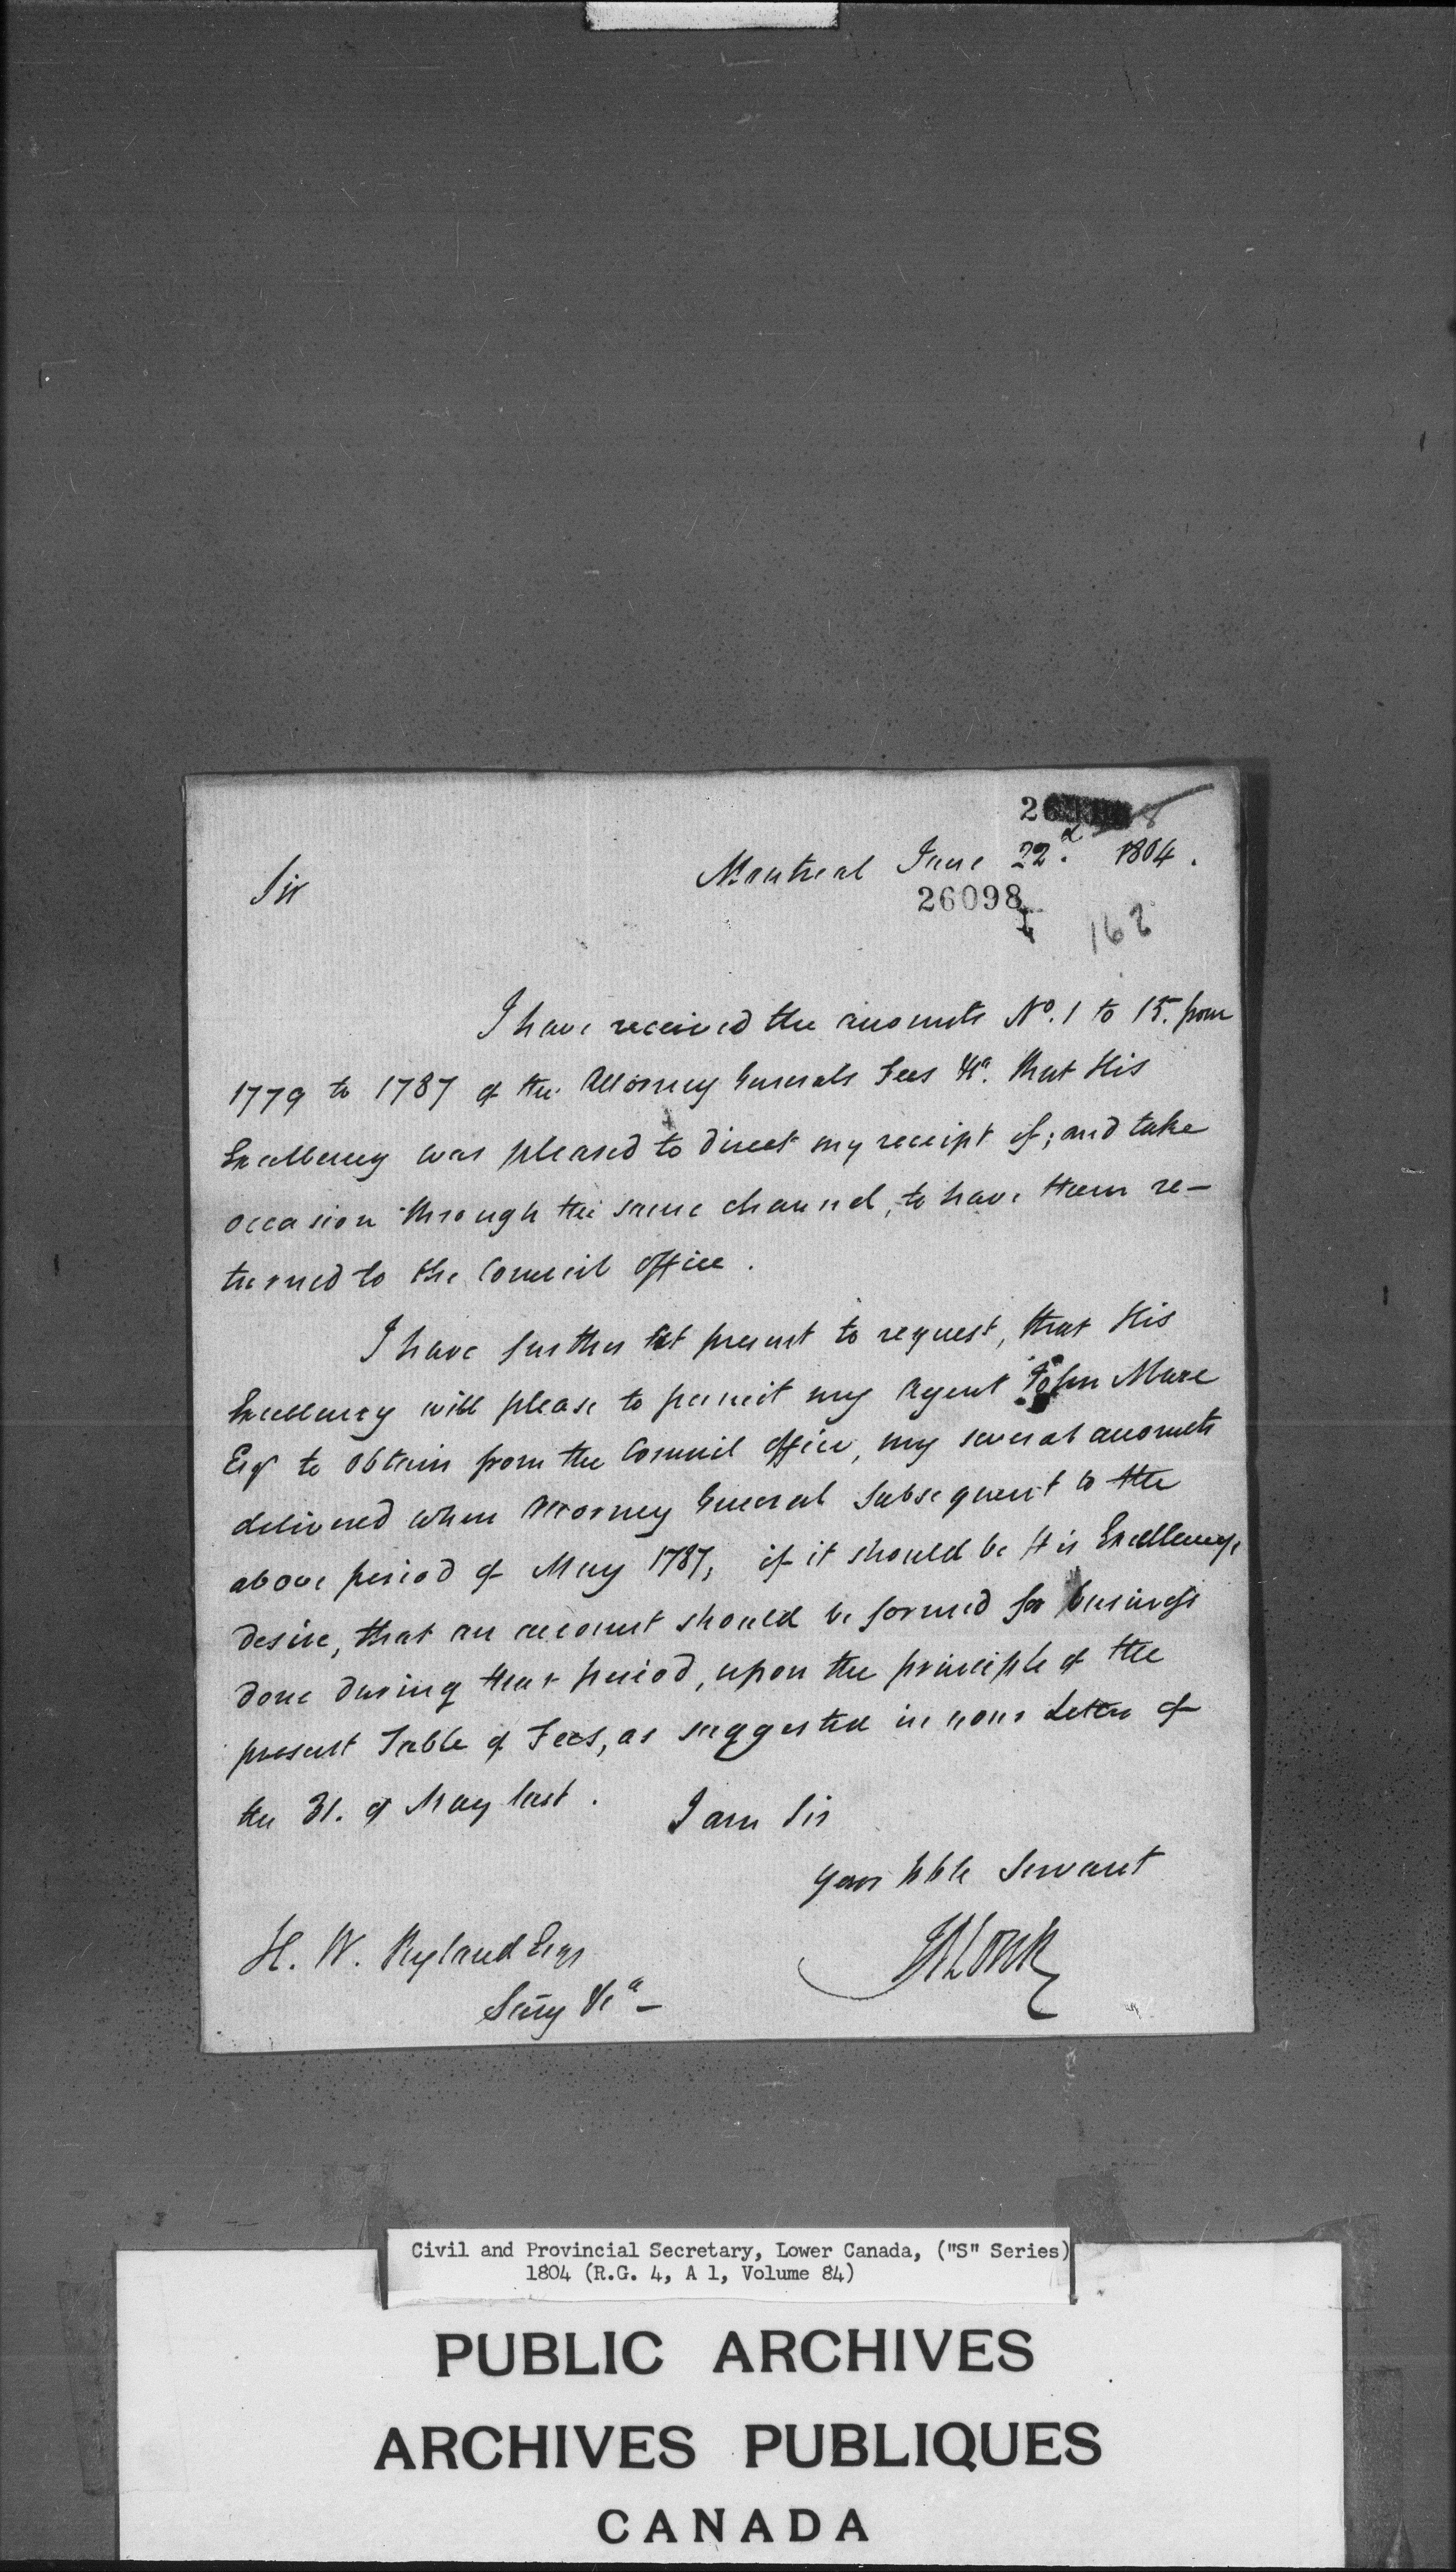 Montreal June 22.d 1804.
Sir
26098
162
I have received the accounts No. 1 to 15. from
1779 to 1787 of the Attorney Generals Fees &ca. that His
Excellency was pleased to direct my receipt of; and take
occasion through the same channel, to have them re-
turned to the Council Office.
I have further at present to request, that His
Excellency will please to permit my Agent John Mure
Esqr to obtain from the Council Office, my several accounts
delivered when Attorney General subsequent to the
above period of May 1787, if it should be His Excellencys
desire, that an account should be formed for business
done during that period, upon the principle of the
present Table of Fees, as suggested in your Letter of
the 31. of May last.
I am Sir
your hble Servant
JMonk
H. W. Ryland Esqr
Secry &ca -
Civil and Provincial Secretary, Lower Canada, ("S" Series)
1804 (R.G. 4, A 1, Volume 84)
PUBLIC ARCHIVES
ARCHIVES PUBLIQUES
CANADA